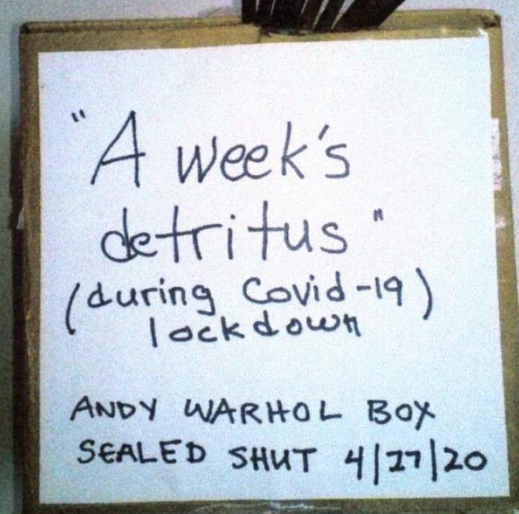 "A week's
detritus"
(during Covid-19)
lockdown
ANDY WARHOL BOX
SEALED SHUT 4/27/20